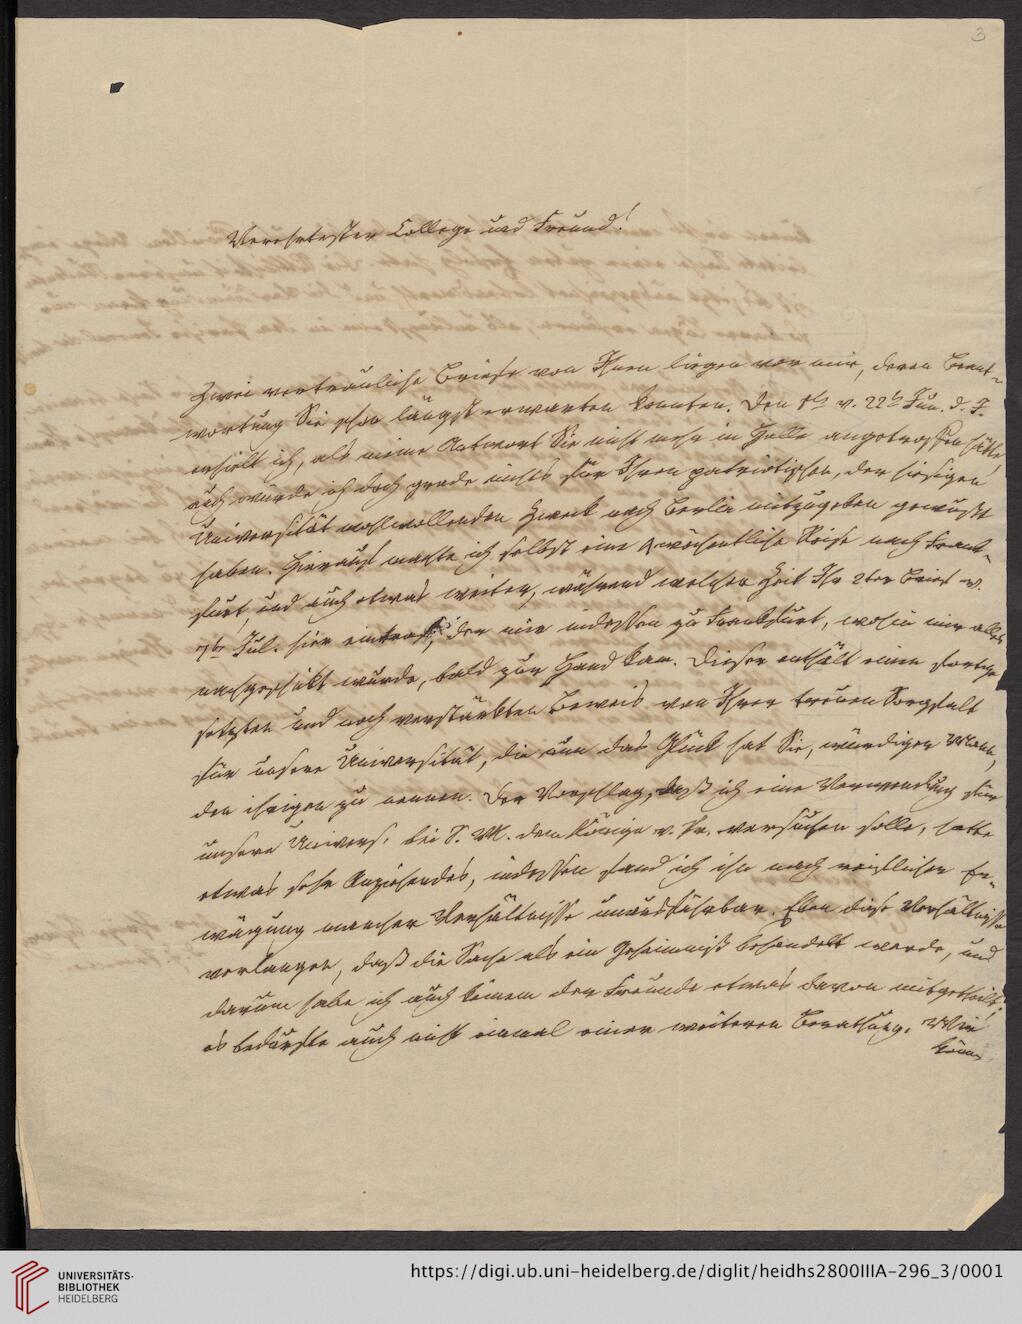 3
Verehrtester College und Freund!
Zwei vertrauliche Briefe von Ihnen liegen vor mir, deren Beant-
wortung Sie schon längst erwarten konnten. Den v. 22 Jun. d. J.
erhielt ich, als meine Antwort Sie nicht mehr in Halle angetroffen hätte,
auch würde ich doch grade nichts für Ihren patriotischen, der hiesigen
Universität wohlwollenden Zweck nach Berlin mitzugeben gewußt
haben. Hierauf machte ich selbst eine 4 wöchentliche Reise nach Frank-
furt, und auch etwas weiter, während welcher Zeit Ihr 2ter Brief v.
Jul. hier eintraf, der mir indessen zu Frankfurt, wohin mir alles
nachgeschikt wurde, bald zur Hand kam. Dieser enthält einen fortge-
setzten und noch verstärkten Beweis von Ihrer treuen Sorgfalt
für unsere Universität, die nun das Glück hat Sie, würdiger Mann,
den ihrigen zu nennen. Der Vorschlag, daß ich eine Verwendung für
unsere Univers. bei S. M. dem Könige v. Pr. versuchen solle, hatte
etwas sehr Anziehendes, indessen fand ich ihn nach reiflicher Er-
wägung mancher Verhältnisse unausführbar. Eben diese Verhältnisse
verlangen, daß die Sache als ein Geheimniß behandelt werde, und
darum habe ich auch keinem der Freunde etwas davon mitgetheilt;
es bedurfte auch nicht einmal einer weiteren Berathung. Wir
UNIVERSITÄTS-
BIBLIOTHEK
HEIDELBERG
https://digi.ub.uni-heidelberg.de/diglit/heidhs2800IIIA-296_3/0001